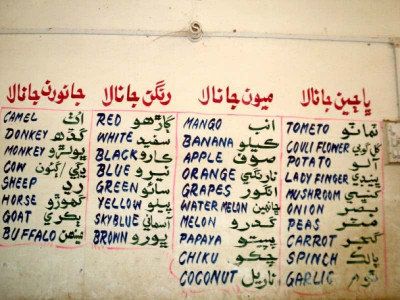 جانورن جا نالا
CAMEL اٺ
DONKEY گڏھ
MONKEY ڀولڙو
COW ڍڳي / ڳئون
SHEEP رڍ
HORSE گھوڙو
GOAT ٻڪري
BUFFALO مينھن
رنگن جا نالا
RED ڳاڙھو
WHITE سفيد
BLACK ڪارو
BLUE نيرو
GREEN سائو
YELLOW پيلو
SKYBLUE آسماني
BROWN ڀورو
ميون جا نالا
MANGO انب
BANANA ڪيلو
APPLE صوف
ORANGE نارنگي
GRAPES انگور
WATER MELON ڇانهين
MELON گدرو
PAPAYA پپيتو
CHIKU چڪو
COCONUT ناريل
ڀاڄين جا نالا
TOMETO ٽماٽو
COULI FLOWER گل گوبي
POTATO آلو
LADY FINGER ڀينڊي
MUSHROOM
ONION بصر
PEAS مٽر
CARROT گجر
SPINCH پالڪ
GARLIC ٿوم